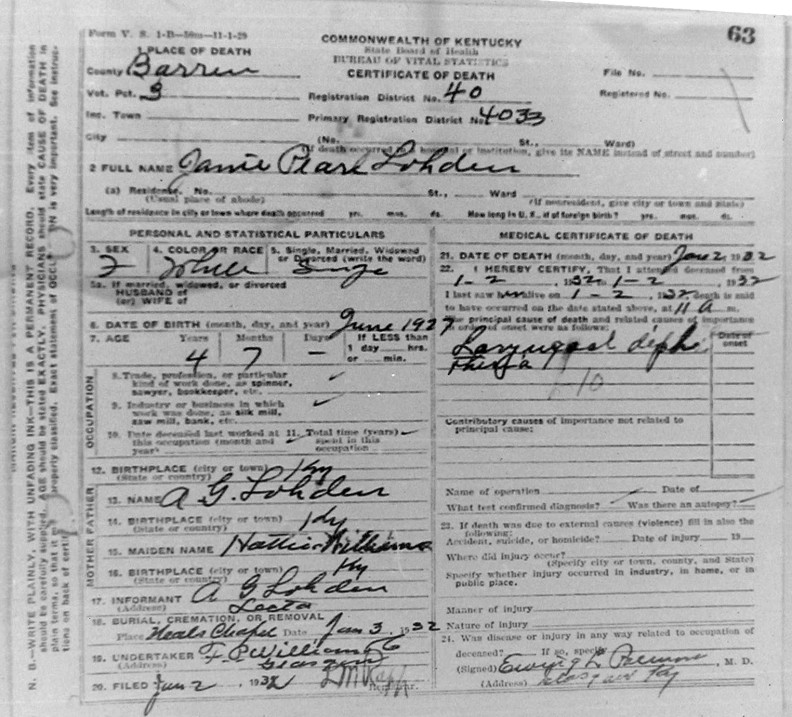 Form V. S. 1-B—50m—11-1-29
63
COMMONWEALTH OF KENTUCKY
State Board of Health
BUREAU OF VITAL STATISTICS
CERTIFICATE OF DEATH
1 PLACE OF DEATH
County Barren
File No.
Vot. Pct. 3
Registration District No. 40
Registered No.
Inc. Town
Primary Registration District No. 4033
City
(No. St., Ward)
(If death occurred in a hospital or institution, give its NAME instead of street and number)
2 FULL NAME Janie Pearl Lohden
(a) Residence. No. St., Ward
(Usual place of abode) (If nonresident, give city or town and State)
Length of residence in city or town where death occurred yrs. mos. ds. How long in U. S., if of foreign birth? yrs. mos. ds.
PERSONAL AND STATISTICAL PARTICULARS
3. SEX 4. COLOR OR RACE 5. Single, Married, Widowed
or Divorced (write the word)
F White Single
5a. If married, widowed, or divorced
HUSBAND of
(or) WIFE of
6. DATE OF BIRTH (month, day, and year) June 1927
7. AGE Years Months Days If LESS than
1 day hrs.
or min.
4 7 —
OCCUPATION
8. Trade, profession, or particular
kind of work done, as spinner,
sawyer, bookkeeper, etc.
9. Industry or business in which
work was done, as silk mill,
saw mill, bank, etc.
10. Date deceased last worked at 11. Total time (years)
this occupation (month and spent in this
year) occupation
12. BIRTHPLACE (city or town) Ky
(State or country)
MOTHER FATHER
13. NAME A G. Lohden
14. BIRTHPLACE (city or town) Ky
(State or country)
15. MAIDEN NAME Hattie Williams
16. BIRTHPLACE (city or town) Ky
(State or country)
17. INFORMANT A G Lohden
(Address) Lecta
18. BURIAL, CREMATION, OR REMOVAL
Place Neals Chapel Date Jan 3, 1932
19. UNDERTAKER F. P. Williams
(Address) Glasgow
20. FILED Jan 2, 1932
Registrar.
MEDICAL CERTIFICATE OF DEATH
21. DATE OF DEATH (month, day, and year) Jan 2, 1932
22. I HEREBY CERTIFY, That I attended deceased from
1-2, 1932 to 1-2, 1932
I last saw h alive on 1-2, 1932, death is said
to have occurred on the date stated above, at 11 A m.
The principal cause of death and related causes of importance
in order of onset were as follows:
Date of
onset
Laryngeal diph
theria
10
Contributory causes of importance not related to
principal cause:
Name of operation Date of
What test confirmed diagnosis? Was there an autopsy?
23. If death was due to external causes (violence) fill in also the
following:
Accident, suicide, or homicide? Date of injury 19
Where did injury occur?
(Specify city or town, county, and State)
Specify whether injury occurred in industry, in home, or in
public place.
Manner of injury
Nature of injury
24. Was disease or injury in any way related to occupation of
deceased? If so, specify
(Signed) M. D.
(Address) Glasgow Ky
N. B.—WRITE PLAINLY, WITH UNFADING INK—THIS IS A PERMANENT RECORD. Every item of information
should be carefully supplied. AGE should be stated EXACTLY. PHYSICIANS should state CAUSE OF DEATH in
plain terms, so that it may be properly classified. Exact statement of OCCUPATION is very important. See instruc-
tions on back of certificate.